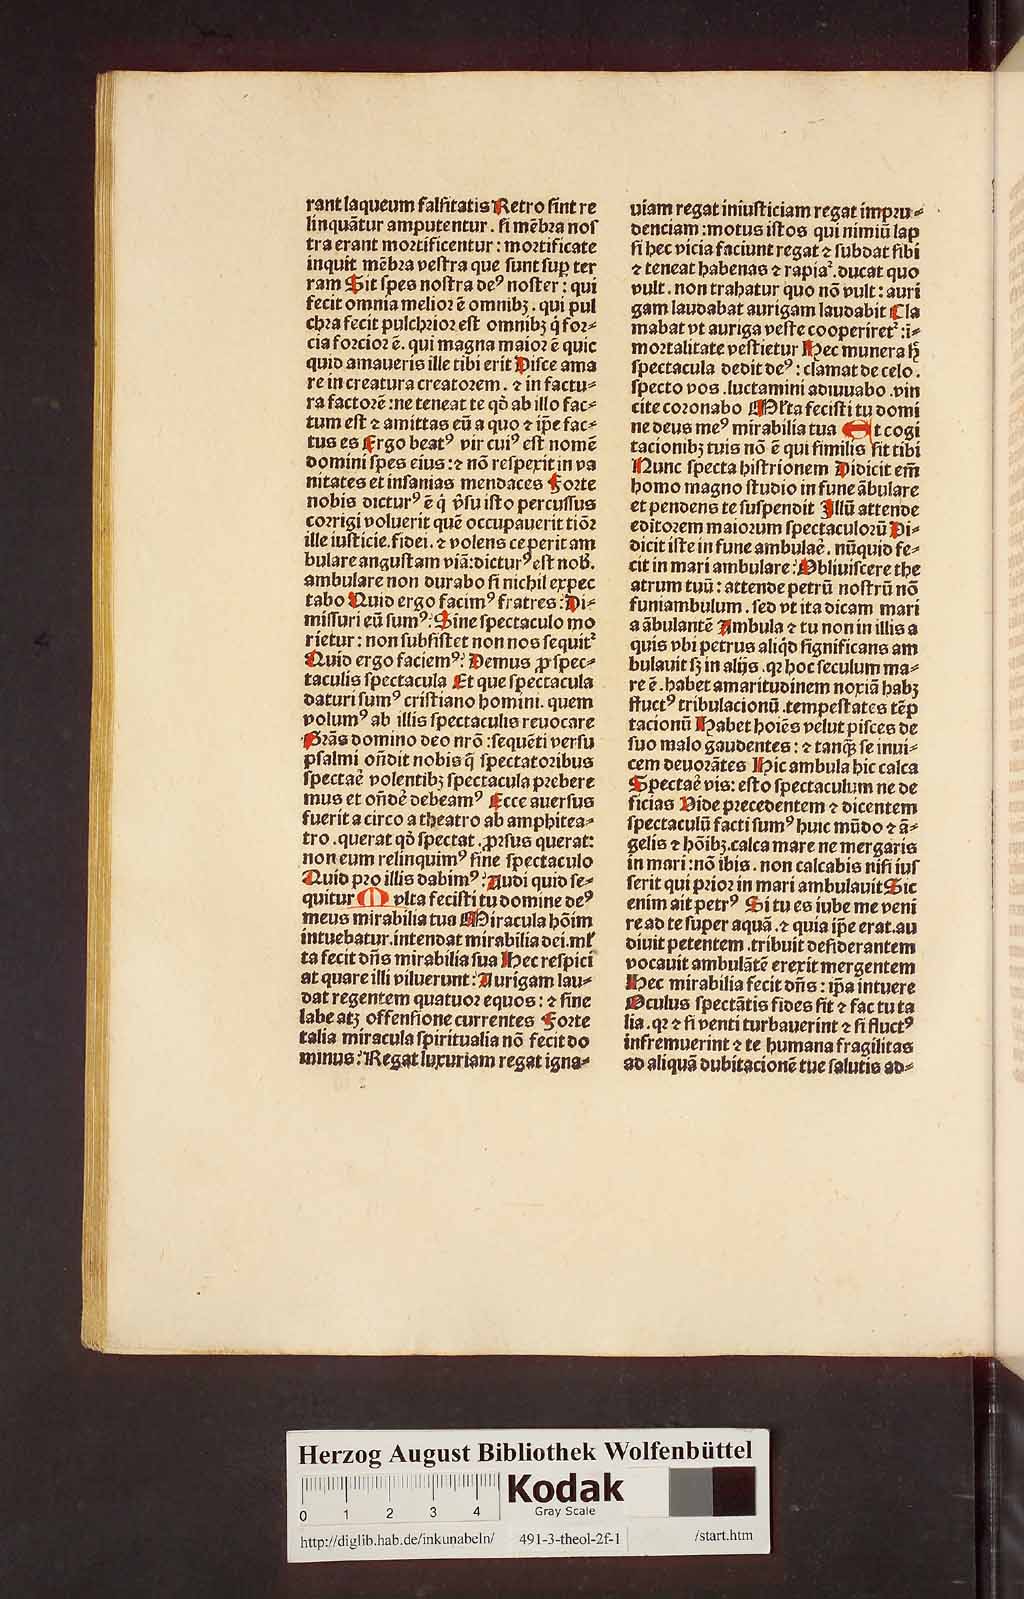 rant laqueum falsitatis Retro sint re
linquātur amputentur . si mēbra nos
tra erant mortificentur : mortificate
inquit mēbra vestra que sunt sup ter
ram Sit spes nostra deꝰ noster : qui
fecit omnia melior ē omnibꝫ . qui pul
chra fecit pulchrior est omnibꝫ q̇ for⸗
cia forcior ē . qui magna maior ē quic
quid amaueris ille tibi erit Disce ama
re in creatura creatorem . ⁊ in factu⸗
ra factorē : ne teneat te qd̄ ab illo fac⸗
tum est ⁊ amittas eū a quo ⁊ ip̄e fac⸗
tus es Ergo beatꝰ vir cuiꝰ est nomē
domini spes eius : ⁊ nō respexit in va
nitates et insanias mendaces Forte
nobis dicturꝰ ē q̇ v̄su isto percussus
corrigi voluerit quē occupauerit tiōr
ille iusticie . fidei . ⁊ volens ceperit am
bulare angustam viā : dicturꝰ est nob̄ .
ambulare non durabo si nichil expec
tabo Quid ergo facimꝰ fratres : Di⸗
missuri eū sumꝰ : Sine spectaculo mo
rietur : non subsistet non nos sequitᷣ
Quid ergo faciemꝰ : Demus ꝓ spec⸗
taculis spectacula Et que spectacula
daturi sumꝰ cristiano homini . quem
volumꝰ ab illis spectaculis reuocare
Grās domino deo nrō : sequēti versu
psalmi on̄dit nobis q̄ spectatoribus
spectaē volentibꝫ spectacula prebere
mus et on̄dē debeamꝰ Ecce auersus
fuerit a circo a theatro ab amphitea⸗
tro . querat qd̄ spectat . ꝓrsus querat :
non eum relinquimꝰ sine spectaculo
Quid pro illis dabimꝰ : Audi quid se⸗
quitur Multa fecisti tu domine deꝰ
meus mirabilia tua Miracula hōim
intuebatur . intendat mirabilia dei . ml̄
ta fecit dn̄s mirabilia sua Hec respici
at quare illi viluerunt : Aurigam lau⸗
dat regentem quatuor equos : ⁊ sine
labe atꝫ offensione currentes Forte
talia miracula spiritualia nō fecit do
minus : Regat luxuriam regat igna⸗
uiam regat iniusticiam regat impru⸗
denciam : motus istos qui nimiū lap
si hec vicia faciunt regat ⁊ subdat sibi
⁊ teneat habenas ⁊ rapiaᷣ . ducat quo
vult . non trahatur quo nō vult : auri
gam laudabat aurigam laudabit Cla
mabat vt auriga veste cooperiretᷣ : i⸗
mortalitate vestietur Hec munera h̄
spectacula dedit deꝰ : clamat de celo .
specto vos . luctamini adiuuabo . vin
cite coronabo Ml̄ta fecisti tu domi
ne deus meꝰ mirabilia tua Et cogi
tacionibꝫ tuis nō ē qui similis sit tibi
Nunc specta histrionem Didicit em̄
homo magno studio in fune ābulare
et pendens te suspendit Illū attende
editorem maiorum spectaculorū Di⸗
dicit iste in fune ambulaē . nūquid fe⸗
cit in mari ambulare : Obliuiscere the
atrum tuū : attende petrū nostrū nō
funiambulum . sed vt ita dicam mari
a ābulantē Ambula ⁊ tu non in illis a
quis vbi petrus aliqd̄ significans am
bulauit sꝫ in alijs . qꝛ hoc seculum ma⸗
re ē . habet amaritudinem noxiā habꝫ
fluctꝰ tribulacionū . tempestates tēp
tacionū Habet hoīes velut pisces de
suo malo gaudentes : ⁊ tanqꝫ se inui⸗
cem deuorātes Hic ambula hic calca
Spectaē vis : esto spectaculum ne de
ficias Vide precedentem ⁊ dicentem
spectaculū facti sumꝰ huic mūdo ⁊ ā⸗
gelis ⁊ hōibꝫ . calca mare ne mergaris
in mari : nō ibis . non calcabis nisi ius
serit qui prior in mari ambulauit Sic
enim ait petrꝰ Si tu es iube me veni
re ad te super aquā . ⁊ quia ip̄e erat . au
diuit petentem . tribuit desiderantem
vocauit ambulātē erexit mergentem
Hec mirabilia fecit dn̄s : ip̄a intuere
Oculus spectātis fides sit ⁊ fac tu ta
lia . qꝛ ⁊ si venti turbauerint ⁊ si fluctꝰ
infremuerint ⁊ te humana fragilitas
ad aliquā dubitacionē tue salutis ad⸗
Herzog August Bibliothek Wolfenbüttel
0 1 2 3 4
Kodak
Gray Scale
http://diglib.hab.de/inkunabeln/ 491-3-theol-2f-1 /start.htm